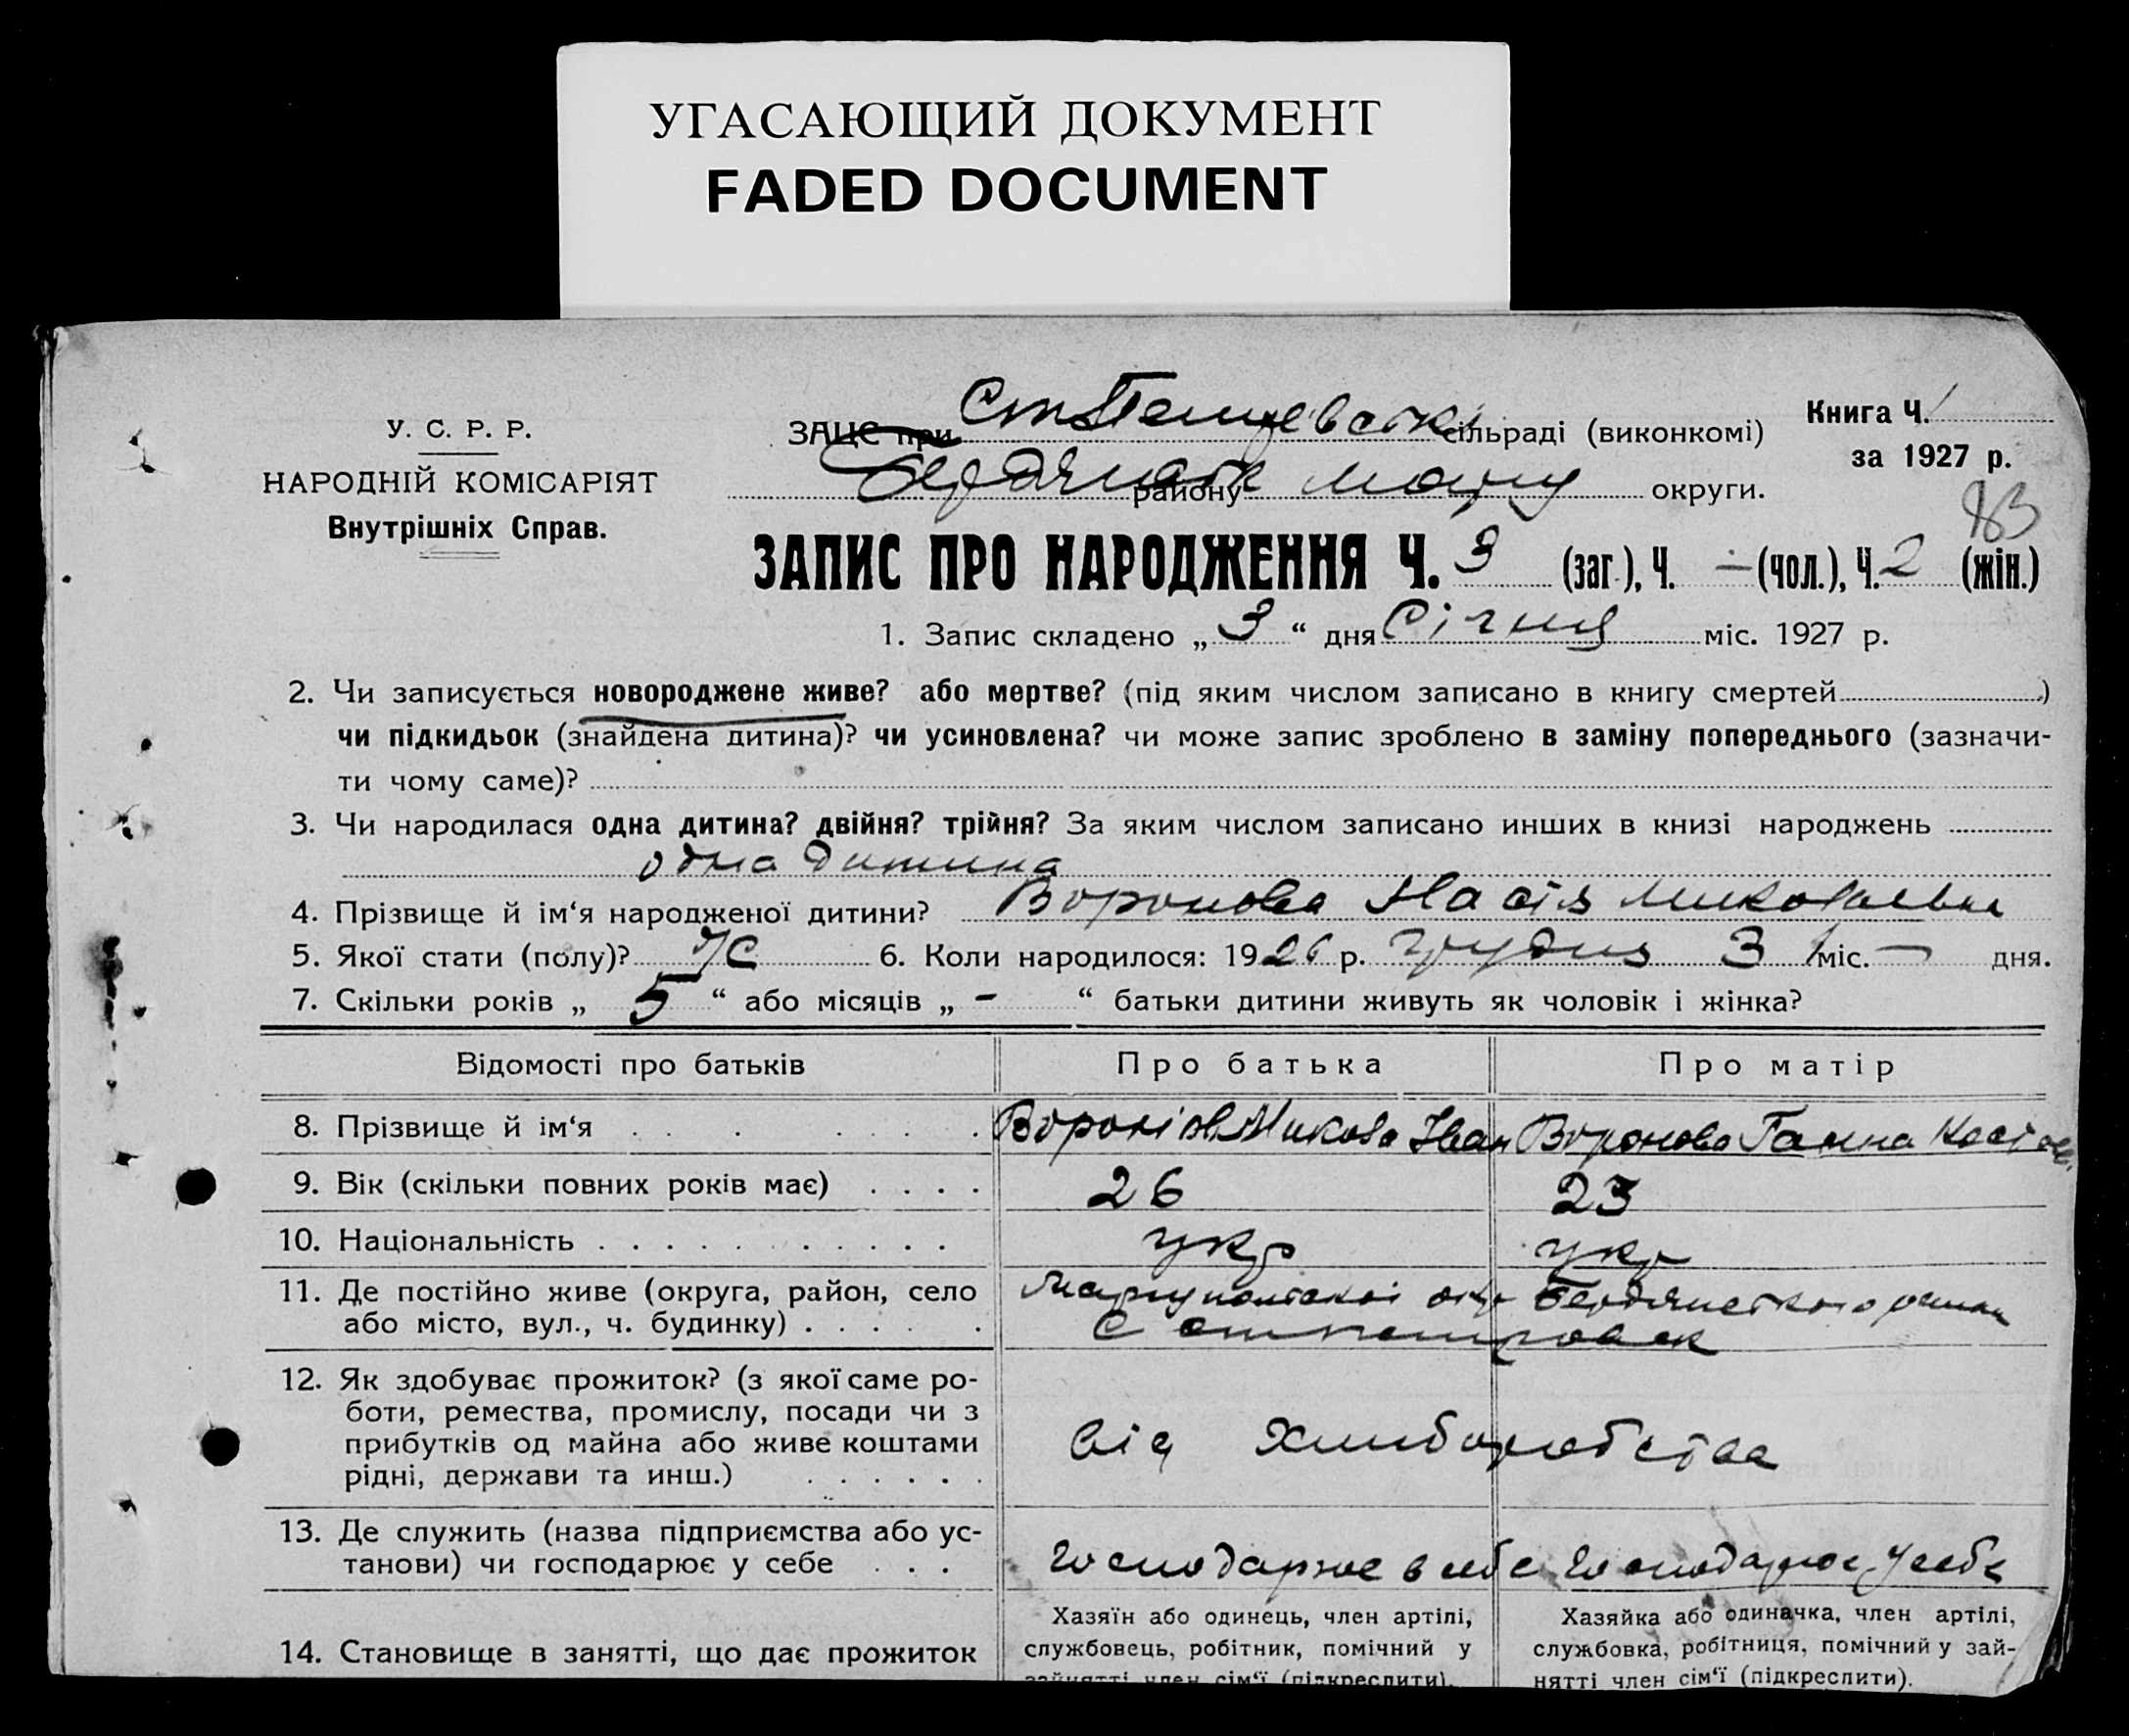 УГАСАЮЩИЙ ДОКУМЕНТ
FADED DOCUMENT
У. С. Р. Р.
НАРОДНІЙ КОМІСАРІЯТ
Внутрішніх Справ.
ЗАЦС при сільраді (виконкомі)
району округи.
Книга Ч.
за 1927 р.
83
ЗАПИС ПРО НАРОДЖЕННЯ Ч. 3 (заг.), Ч. — (чол.), Ч. 2 (жін.)
1. Запис складено „ 3 “ дня Січня міс. 1927 р.
2. Чи записується новороджене живе? або мертве? (під яким числом записано в книгу смертей )
чи підкидьок (знайдена дитина)? чи усиновлена? чи може запис зроблено в заміну попереднього (зазначи-
ти чому саме)?
3. Чи народилася одна дитина? двійня? трійня? За яким числом записано инших в книзі народжень
одна дитина
4. Прізвище й ім‘я народженої дитини? Воронова Настя Миколаевна
5. Якої стати (полу)? Ж 6. Коли народилося: 1926 р. грудня 3 міс. — дня.
7. Скільки років „ 5 “ або місяців „ - “ батьки дитини живуть як чоловік і жінка?
Відомості про батьків Про батька Про матір
8. Прізвище й ім‘я Воронів Микола Іван Воронова Ганна
9. Вік (скільки повних років має) 26 23
10. Національність укр укр
11. Де постійно живе (округа, район, село Бердянського
або місто, вул., ч. будинку) С
12. Як здобуває прожиток? (з якої саме ро-
боти, ремества, промислу, посади чи з
прибутків од майна або живе коштами від
рідні, держави та инш.)
13. Де служить (назва підприємства або ус-
танови) чи господарює у себе господарює в себе господарює у себе
14. Становище в занятті, що дає прожиток
Хазяїн або одинець, член артілі,
службовець, робітник, помічний у
зайнятті член сім‘ї (підкреслити).
Хазяйка або одиначка, член артілі,
службовка, робітниця, помічний у зай-
нятті член сім‘ї (підкреслити).